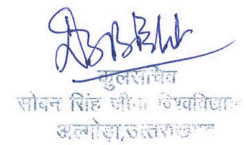 कुलसचिव
सोबन सिंह जीना विश्वविद्यालय
अल्मोड़ा,उत्तराखण्ड